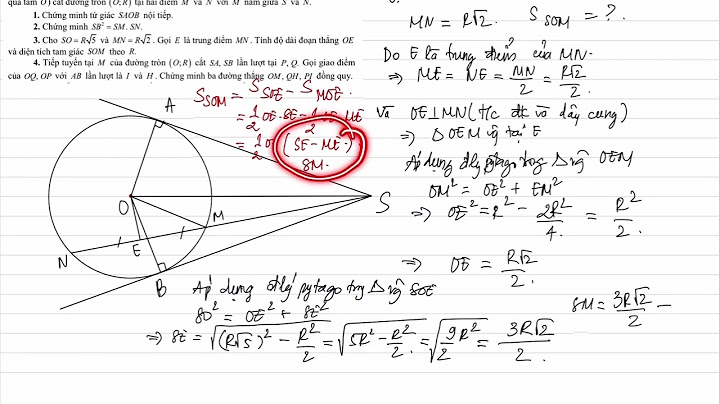 qua tâm O) cắt đường tròn (O;R) tại hai điểm M và N với M nằm giữa S và N.
1. Chứng minh tứ giác SAOB nội tiếp.
2. Chứng minh SB² = SM.SN.
3. Cho SO = R√5 và MN = R√2. Gọi E là trung điểm MN. Tính độ dài đoạn thẳng OE
và diện tích tam giác SOM theo R.
4. Tiếp tuyến tại M của đường tròn (O;R) cắt SA, SB lần lượt tại P, Q. Gọi giao điểm
của OQ, OP với AB lần lượt là I và H. Chứng minh ba đường thẳng OM, QH, PI đồng quy.
MN = R√2. S SOM = ?
Do E là trung điểm của MN.
⇒ ME = NE = MN/2 = R√2/2.
Và OE⊥MN (t/c đk và dây cung)
⇒ Δ OEM vg tại E
Áp dụng đlý pytago trg Δ vg OEM
OM² = OE² + EM²
⇒ OE² = R² - 2R²/4 = R²/2.
⇒ OE = R√2/2.
S SOM = S SOE - S MOE.
= 1/2 OE.SE - 1/2 OE.ME
= 1/2 OE (SE - ME.)
SM.
A
O
M
S
E
N
B
Áp dụng đlý pytago trg Δ vg SOE
SO² = OE² + SE²
⇒ SE = √((R√5)² - R²/2) = √(5R² - R²/2) = √(9R²/2) = 3R√2/2.
SM = 3R√2/2 -